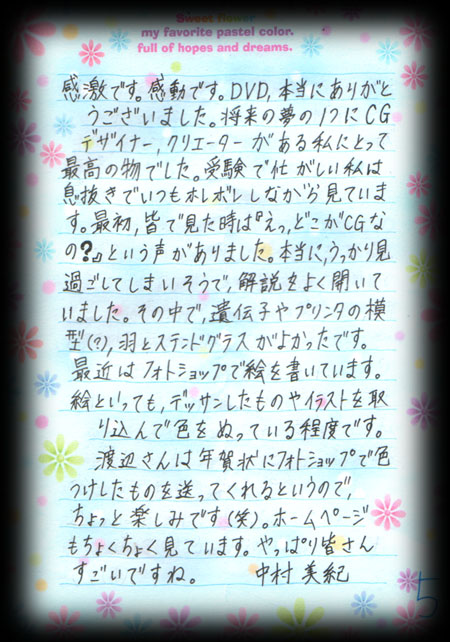 Sweet flower
my favorite pastel color.
full of hopes and dreams.
感激です。感動です。DVD,本当にありがと
うございました。将来の夢の1つにCG
デザイナー,クリエーターがある私にとって
最高の物でした。受験で忙がしい私は
息抜きでいつもホレボレしながら見ていま
す。最初,皆で見た時は『えっ,どこがCGな
の?』という声がありました。本当に,うっかり見
過ごしてしまいそうで,解説をよく聞いて
いました。その中で,遺伝子やプリンタの模
型(?),羽とステンドグラスがよかったです。
最近はフォトショップで絵を書いています。
絵といっても,デッサンしたものやイラストを取
り込んで色をぬっている程度です。
渡辺さんは年賀状にフォトショップで色
つけしたものを送ってくれるというので,
ちょっと楽しみです(笑)。ホームページ
もちょくちょく見ています。やっぱり皆さん
すごいですね。 中村 美紀
5